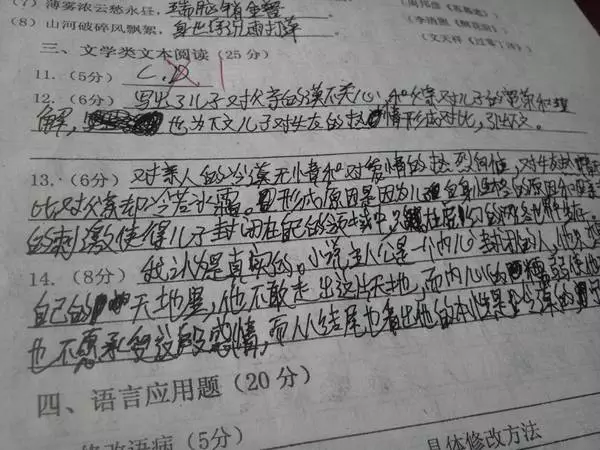 (7) 薄雾浓云愁永昼,瑞脑销金兽。
(李清照《醉花阴》)
(8) 山河破碎风飘絮,身世浮沉雨打萍
(文天祥《过零丁洋》)
三、文学类文本阅读(25分)
11.(5分) C.D
12.(6分) 写出了儿子对父亲的漠不关心,和父亲对儿子的宽容和理
解, 也为下文儿子对女友的热情形成对比,引出下文。
13.(6分) 对亲人的冷漠无情和对爱情的热烈向往,对女友
比对父亲却冷若冰霜。形成原因是因为儿子自身性格的原因和
的刺激使得儿子封闭在自己的 中,只 在 的网络世界生存。
14.(8分) 我认为是真实的。小说主人公是一个内心封闭的人,他
自己的天地里,他不敢走出这片天地,而内心的 弱使他
也不愿承受这段感情。而从结尾也看出他的本性是冷漠的
四、语言应用题(20分)
修改语病(5分)
具体修改方法